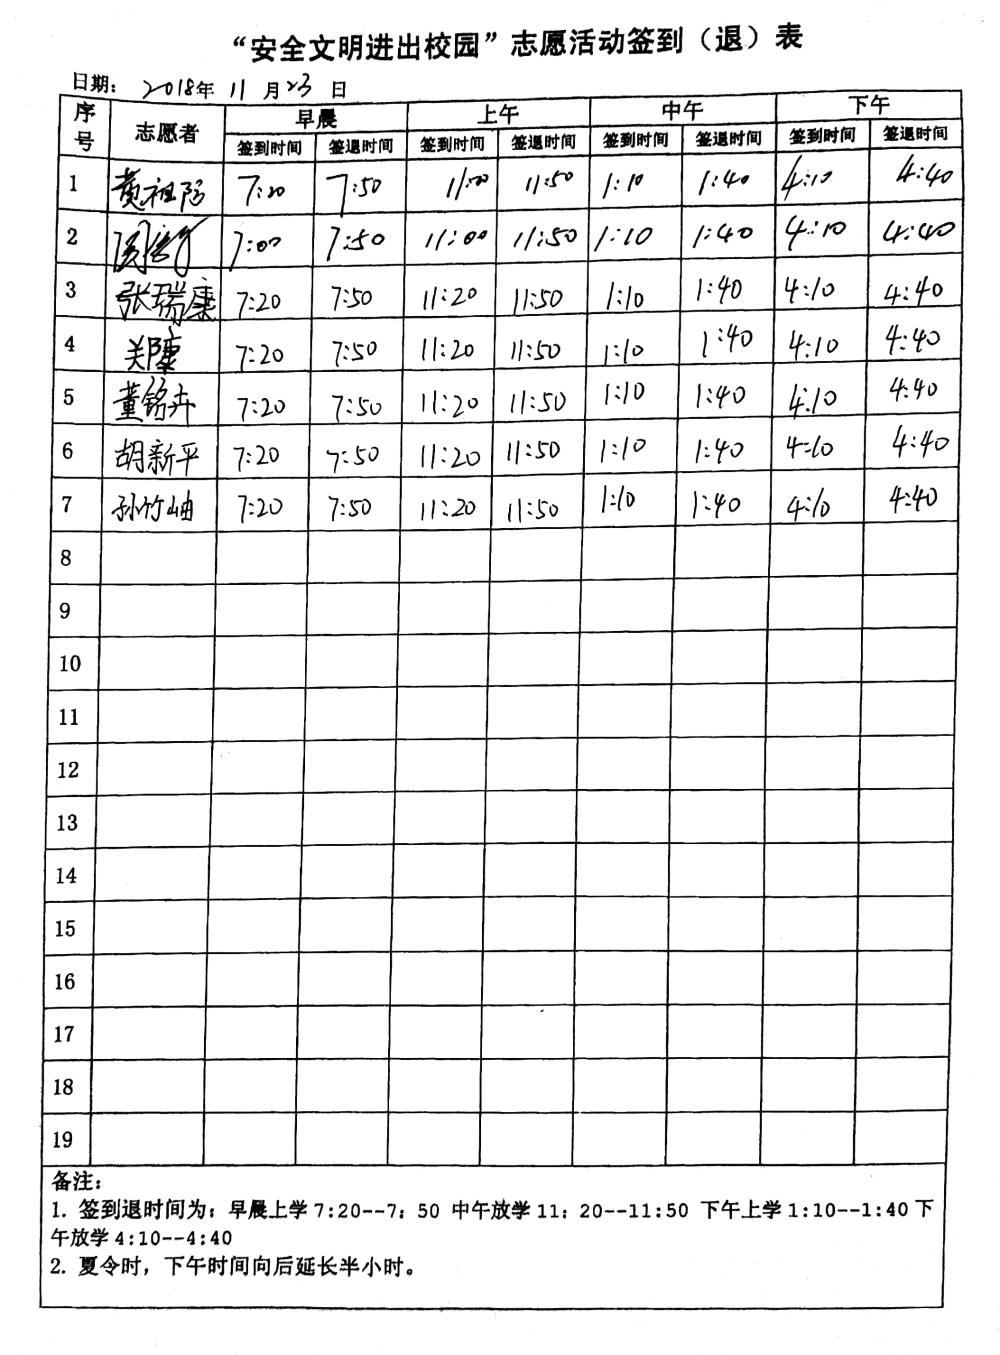 “安全文明进出校园”志愿活动签到（退）表
日期： 2018年 11 月 23 日
序号 志愿者 早晨 上午 中午 下午
签到时间 签退时间 签到时间 签退时间 签到时间 签退时间 签到时间 签退时间
1 黄祖 7:20 7:50 11:20 11:50 1:10 1:40 4:10 4:40
2 7:00 7:50 11:00 11:50 1:10 1:40 4:10 4:40
3 张瑞康 7:20 7:50 11:20 11:50 1:10 1:40 4:10 4:40
4 7:20 7:50 11:20 11:50 1:10 1:40 4:10 4:40
5 董铭卉 7:20 7:50 11:20 11:50 1:10 1:40 4:10 4:40
6 胡新平 7:20 7:50 11:20 11:50 1:10 1:40 4:10 4:40
7 孙竹岫 7:20 7:50 11:20 11:50 1:10 1:40 4:10 4:40
8
9
10
11
12
13
14
15
16
17
18
19
备注：
1. 签到退时间为：早晨上学 7:20--7：50 中午放学 11：20--11:50 下午上学 1:10--1:40 下
午放学 4:10--4:40
2. 夏令时，下午时间向后延长半小时。